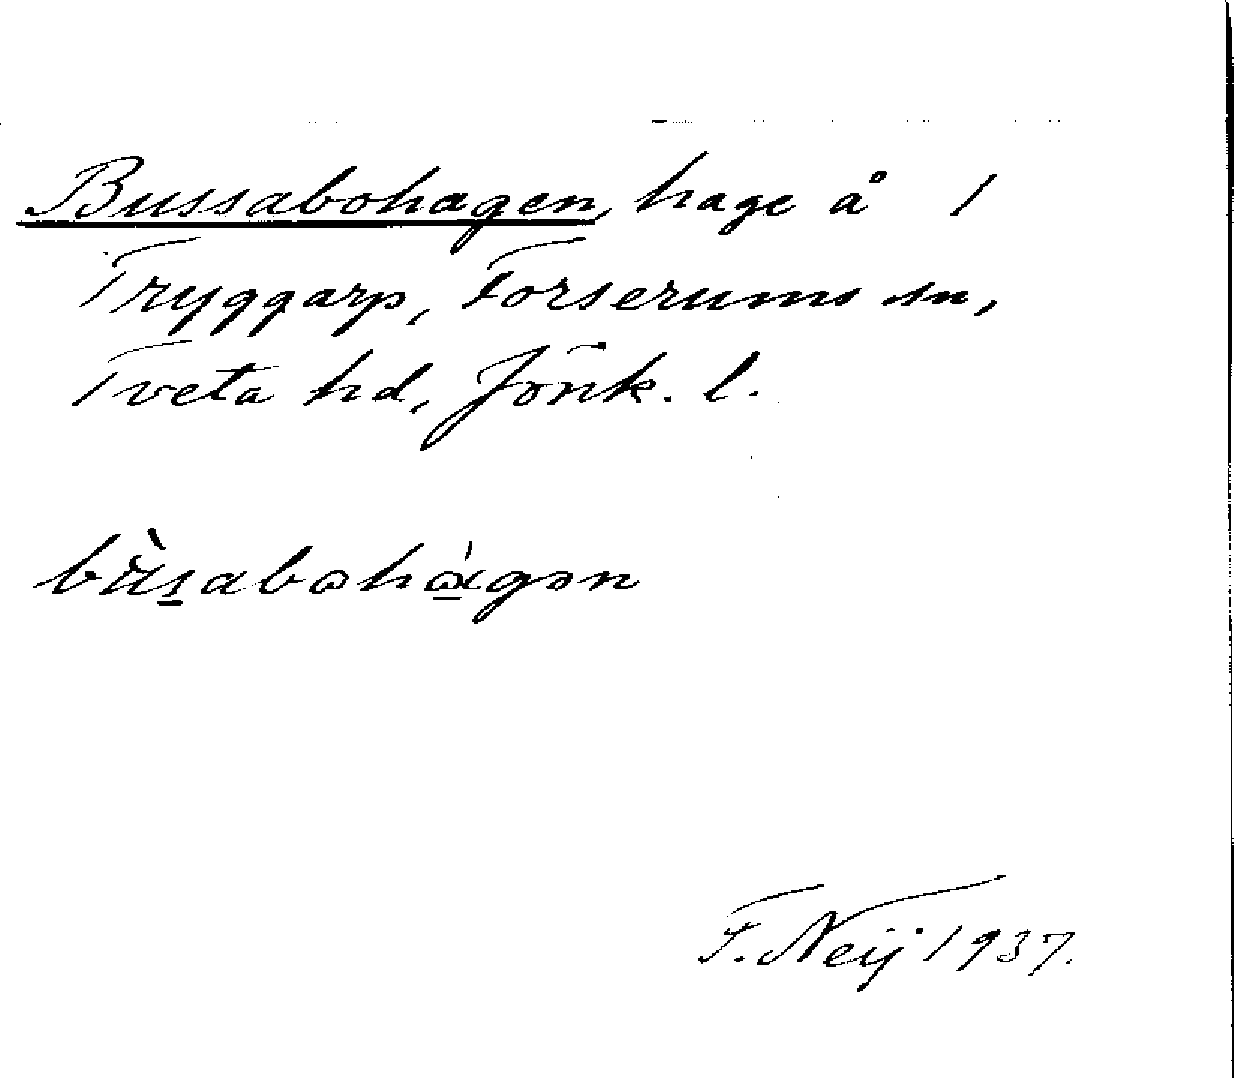 Bussabohagen, hage å 1
Tryggarp, Forserums sn,
Tveta hd, Jönk. l.
bùs̲abohά̲gən
F. Neij 1937.